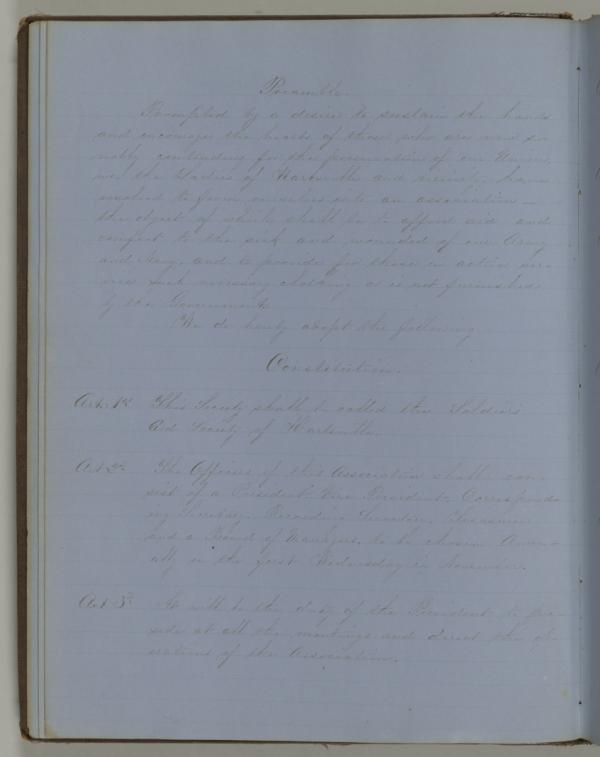 Preamble.
Prompted by a desire to sustain the hands
and encourage the hearts of those who are now so
nobly contending for the preservation of our Union,
we, the Ladies of Hartsville and vicinity have
resolved to form ourselves into an association —
the object of which shall be to afford aid and
comfort to the sick and wounded of our Army
and Navy, and to provide for those in active ser-
vice such necessary clothing as is not furnished
by the Government.
We do hereby adopt the following
Constitution.
Art. 1st. This Society shall be called the Soldiers
Aid Society of Hartsville.
Art 2d. The Officers of this Association shall con-
sist of a President, Vice President, Correspond-
ing Secretary, Recording Secretary, Treasurer
and a Board of Managers, to be chosen Annu-
ally on the first Wednesday in November.
Art 3d. It will be the duty of the President to pre-
side at all the meetings and direct the op-
erations of the Association.